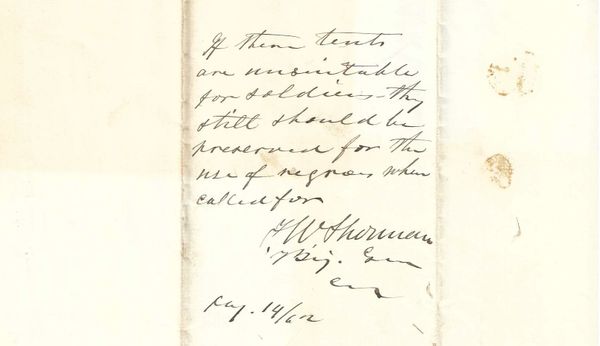 If these tents
are unsuitable
for soldiers they
still should be
preserved for the
use of negroes when
called for
T W Sherman
Brig. Gen
Cg
14/62